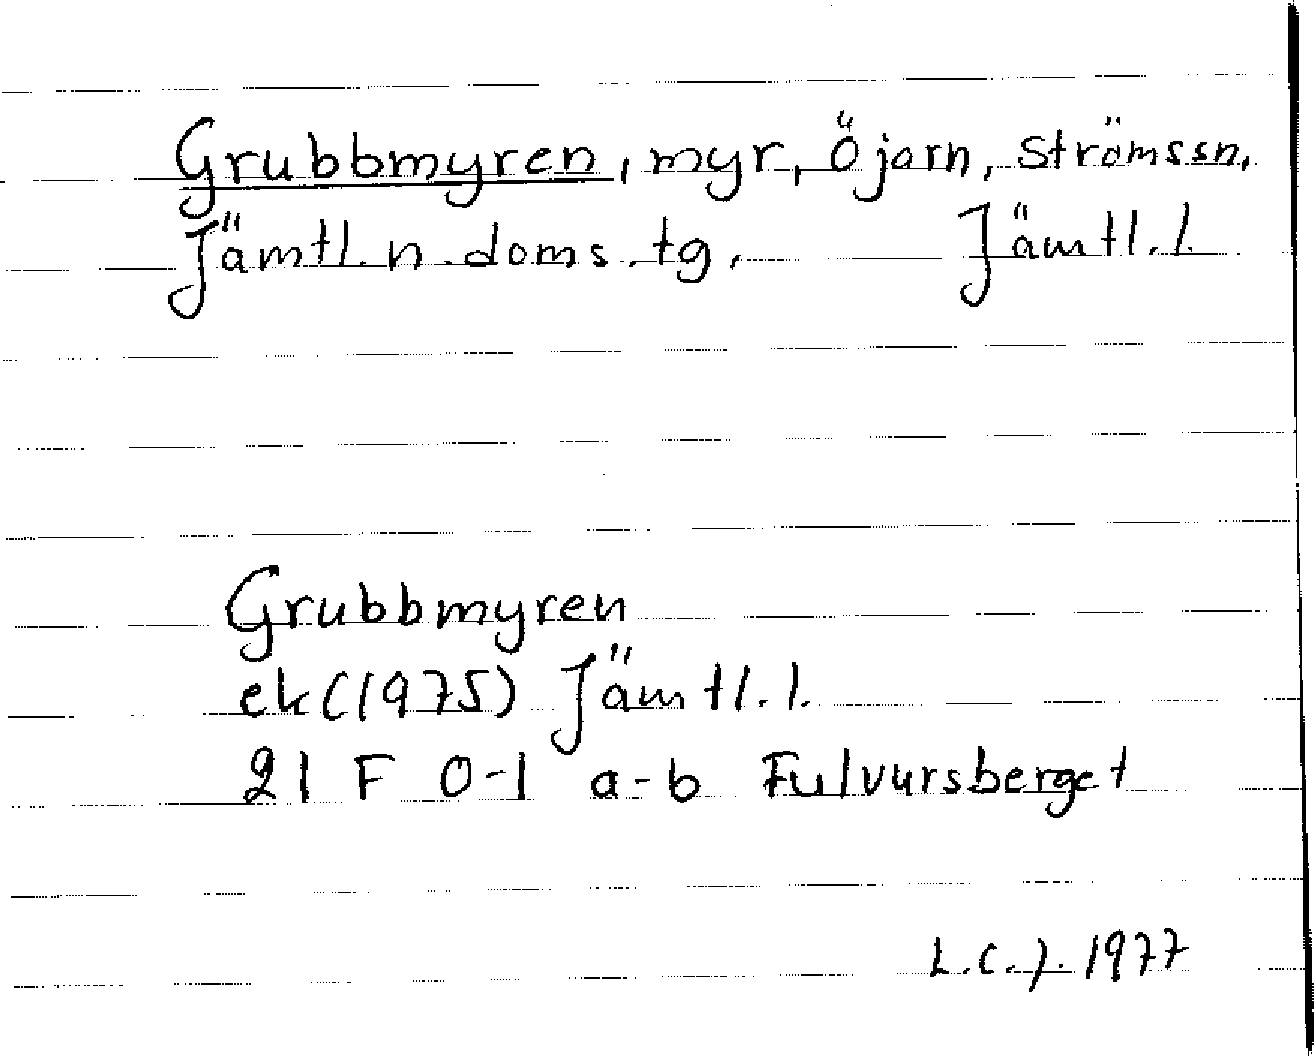 Grubbmyren, myr, Öjarn, Strömssn,
Jämtl. n. doms. tg, Jämtl. l.
Grubbmyren
ek (1975) Jämtl. l.
21 F 0-1 a-b Fulvursberget
L.C.J. 1977